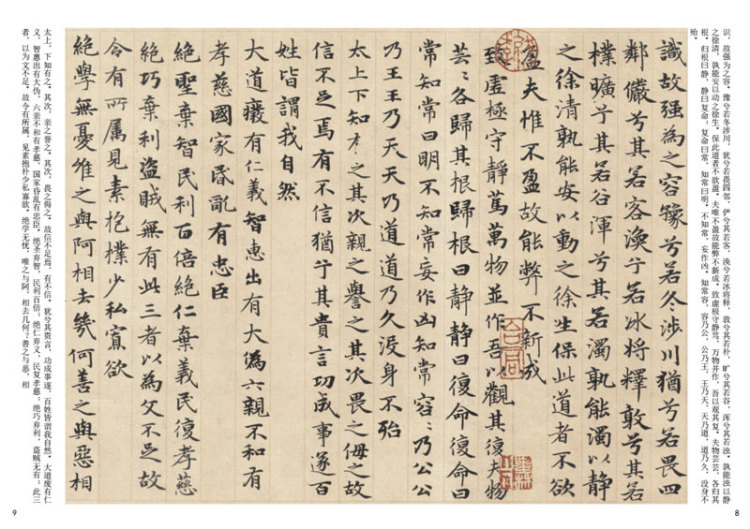 识，故强为之容。豫兮若冬涉川，犹兮若畏四邻，俨兮其若客，涣兮若冰将释，敦兮其若朴，旷兮其若谷，浑兮其若浊。孰能浊以静
之徐清，孰能安以动之徐生。保此道者不欲盈，夫唯不盈故能弊不新成。致虚极守静笃，万物并作，吾以观其复。夫物芸芸，各归其
根，归根曰静，静曰复命。复命曰常，知常曰明。不知常，妄作凶。知常容，容乃公，公乃王，王乃天，天乃道，道乃久，没身不
殆。
識故强為之容豫兮若冬涉川猶兮若畏四
鄰儼兮其若客渙兮若冰將釋敦兮其若
樸曠兮其若谷渾兮其若濁孰能濁以靜
之徐清孰能安以動之徐生保此道者不欲
盈夫惟不盈故能弊不新成
致虛極守靜篤萬物並作吾以觀其復夫物
芸〻各歸其根歸根曰静静曰復命復命曰
常知常曰明不知常妄作凶知常容〻乃公公
乃王王乃天天乃道道乃久没身不殆
太上下知有之其次親之譽之其次畏之侮之故
信不足焉有不信猶兮其貴言功成事遂百
姓皆謂我自然
大道癈有仁義智惠出有大偽六親不和有
孝慈國家昏亂有忠臣
絶聖棄智民利百倍絶仁棄義民復孝慈
絶巧棄利盜賊無有此三者以為文不足故
令有所属見素抱樸少私寡欲
絶學無憂唯之與阿相去幾何善之與惡相
合同
太上，下知有之。其次，亲之誉之。其次，畏之侮之。故信不足焉，有不信。犹兮其贵言，功成事遂，百姓皆谓我自然。大道废有仁
义，智惠出有大伪，六亲不和有孝慈，国家昏乱有忠臣。绝圣弃智，民利百倍；绝仁弃义，民复孝慈；绝巧弃利，盗贼无有。此三
者，以为文不足，故令有所属，见素抱朴少私寡欲。绝学无忧，唯之与阿，相去几何？善之与恶，相
8
9